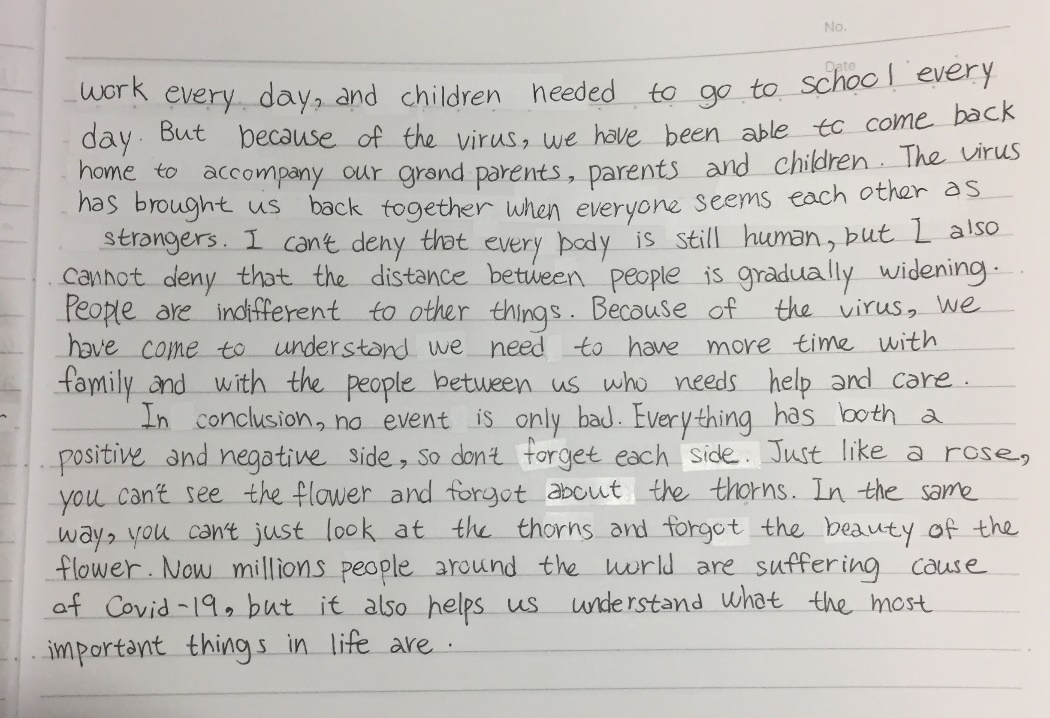 No.
Date
work every day, and children needed to go to school every
day. But because of the virus, we have been able to come back
home to accompany our grand parents, parents and children. The virus
has brought us back together when everyone seems each other as
strangers. I can't deny that every body is still human, but I also
cannot deny that the distance between people is gradually widening.
People are indifferent to other things. Because of the virus, we
have come to understand we need to have more time with
family and with the people between us who needs help and care.
In conclusion, no event is only bad. Everything has both a
positive and negative side, so don't forget each side. Just like a rose,
you can't see the flower and forgot about the thorns. In the same
way, you can't just look at the thorns and forgot the beauty of the
flower. Now millions people around the world are suffering cause
of Covid-19, but it also helps us understand what the most
important things in life are.